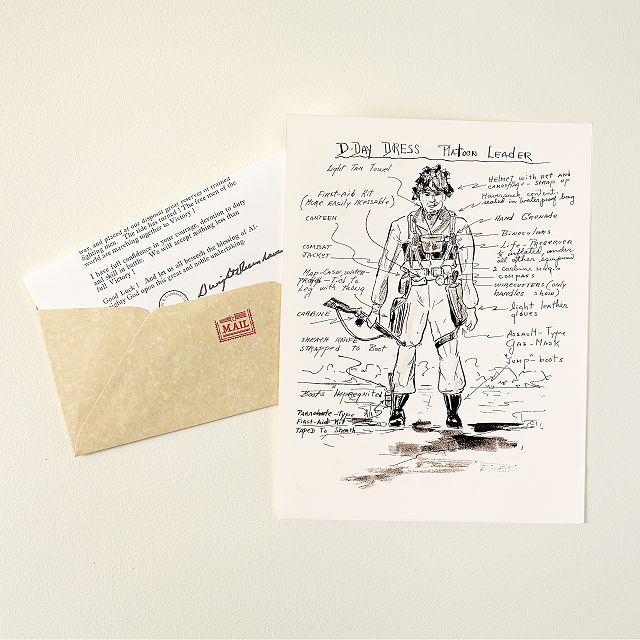 war, and placed at our disposal great reserves of trained
fighting men. The tide has turned! The free men of the
world are marching together to Victory!
I have full confidence in your courage, devotion to duty
and skill in battle. We will accept nothing less than
full Victory!
Good Luck! And let us all beseech the blessing of Al-
mighty God upon this great and noble undertaking.
MAIL
D-DAY DRESS PLATOON LEADER
Light Tan Towel
First-Aid Kit
(More Easily Accessable)
CANTEEN
COMBAT
JACKET
Map-Case, water-
proof-Tied To
Leg with thong
CARBINE
SHEATH KNIFE
strapped to Boot
Boots Impregnited
Parachute-Type
First-Aid Kit
TAPED To Sheath
HELMET with net and
camouflage - strap up
Haversack contents
sealed in waterproof bag
Hand Grenade
Binoculars
Life Preserver
under
all other equipment
2 carbine mags
compass
WIRECUTTERS (only
handles show)
light leather
gloves
Assault-Type
Gas-Mask
"Jump"-boots